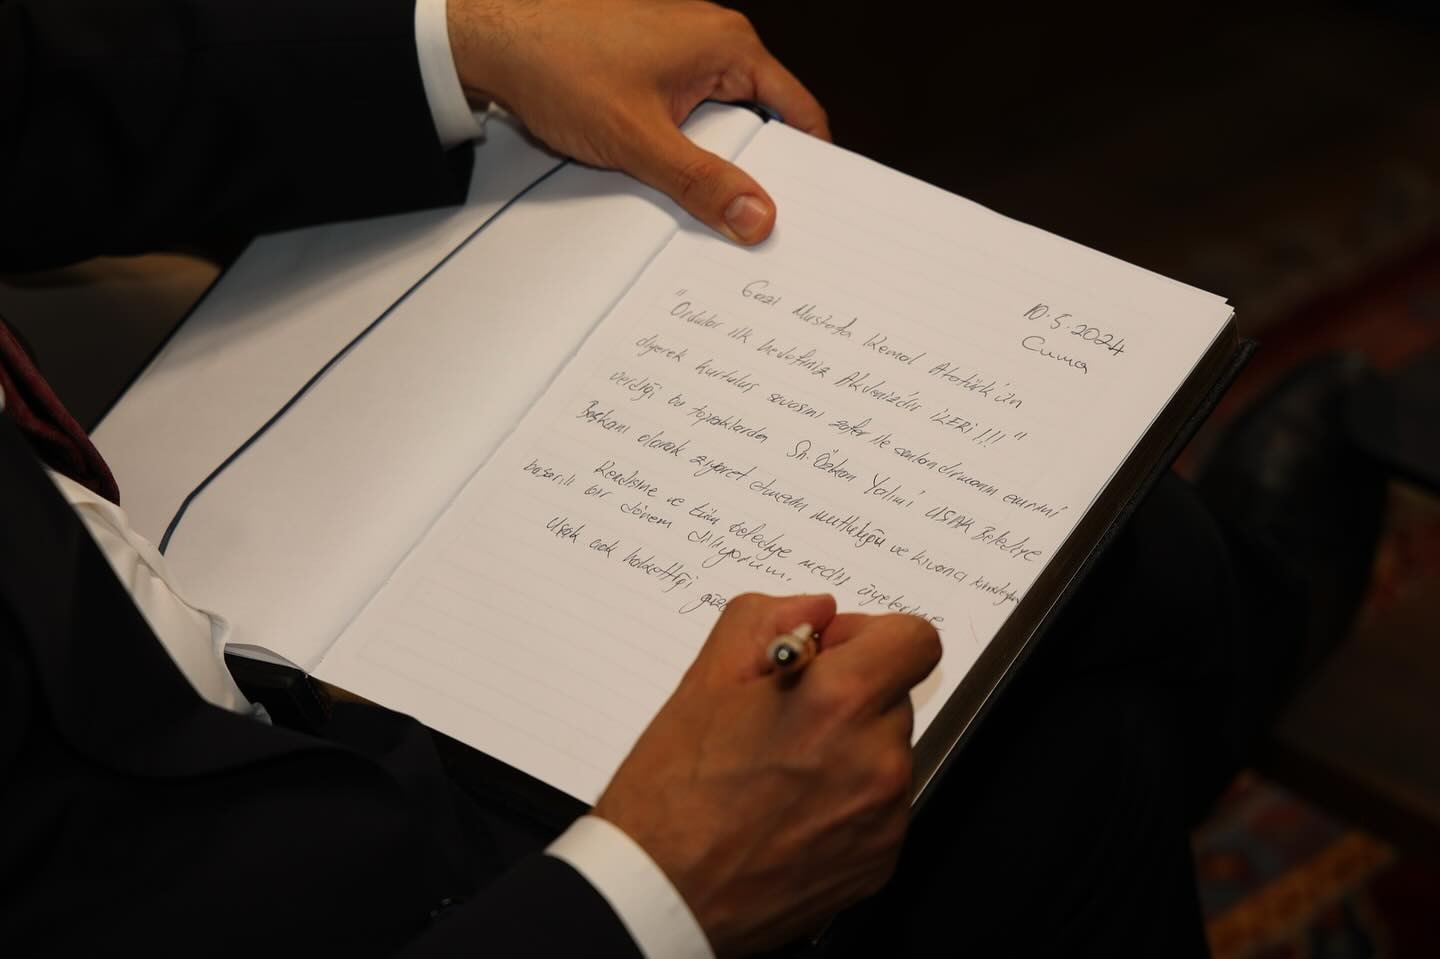 10.5.2024
Cuma
Gazi Mustafa Kemal Atatürk'ün
"Ordular ilk hedefiniz Akdenizdir İLERİ!!!"
diyerek kurtuluş savaşını zafer ile sonlandırmanın emrini
verdiği bu topraklarda Sn. Özkan Yalım'ı UŞAK Belediye
Başkanı olarak ziyaret etmenin mutluluğu ve kıvancı
Kendisine ve tüm belediye meclis üyelerine
başarılı bir dönem diliyorum.
Uşak çok hakettiği